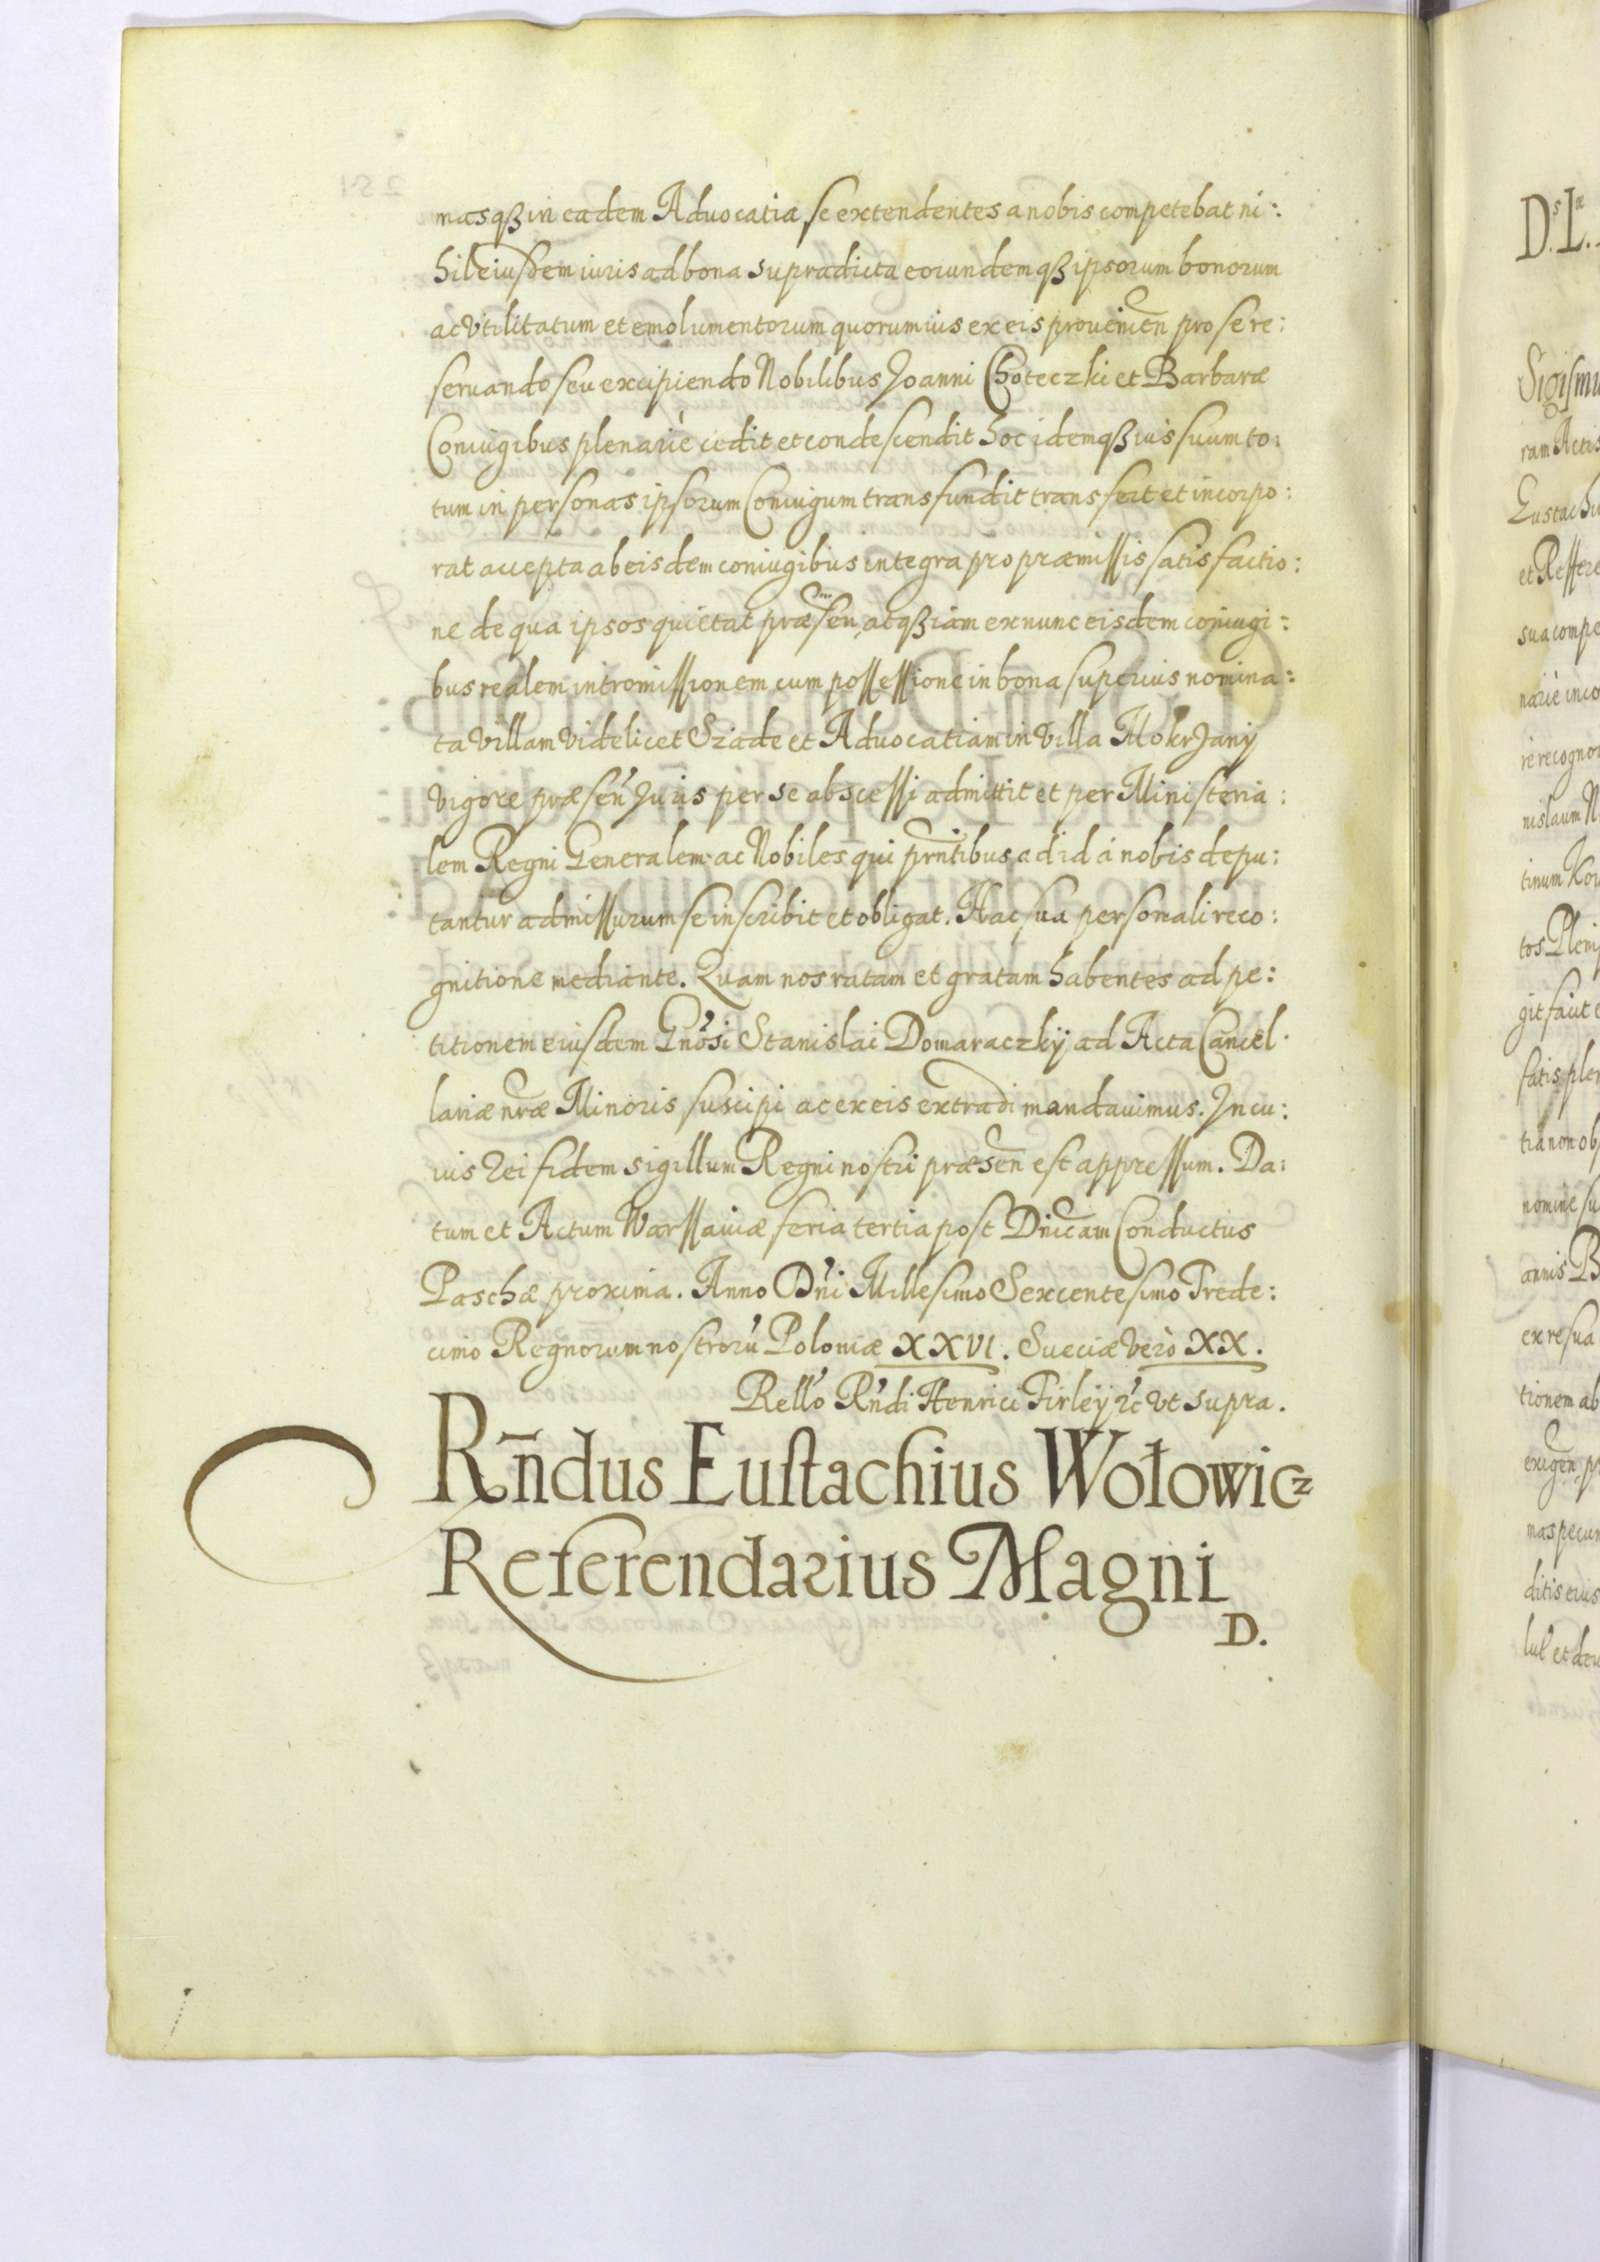 masqß in eadem Advocatia se extendentes a nobis competebat ni:
hil eiusdem iuris ad bona supradicta eorundemqß ipsorum bonorum
ac Vtilitatum et emolumentorum quorumius ex eis prouenien pro se re:
seruando seu excipiendo Nobilibus Joanni Choteczki et Barbaræ
Coniugibus plenariè cedit et condescendit hoc idemqß ius suum to:
tum in personas ipsorum Coniugum transfundit transfert et incorpo:
rat accepta ab eisdem coniugibus integra pro præmissis satisfactio:
ne de qua ipsos quietat præsen, atqß iam ex nunc eisdem coniugi:
bus realem intromissionem cum possessione in bona superius nomina:
ta Villam Videlicet Sziade et Advocatiam in Villa Mokrzany
Vigore præsen Juris per se abscessi admittit et per Ministeria:
lem Regni Generalem ac Nobiles qui prntibus ad id à nobis depu:
tantur admissurum se inscribit et obligat. Hac sua personali reco:
gnitione mediante. Quam nos ratam et gratam habentes ad pe:
titionem eiusdem Gnosi Stanislai Domaraczky ad Acta Cancel
lariæ nræ Minoris suscipi ac ex eis extradi mandauimus. In cu:
ius rei fidem sigillum Regni nostri præsen est appressum. Da:
tum et Actum Warssauiæ feria tertia post Dnicam Conductus
Paschæ proxima. Anno Dni Millesimo Sexcentesimo Trede:
cimo Regnorum nostroru Poloniæ XXVI. Sueciæ Verò XX.
Rello Rndi Henrici Firley rc Vt supra.
Rn̄dus Eustachius Wołowicz
Referendarius Magni
D.